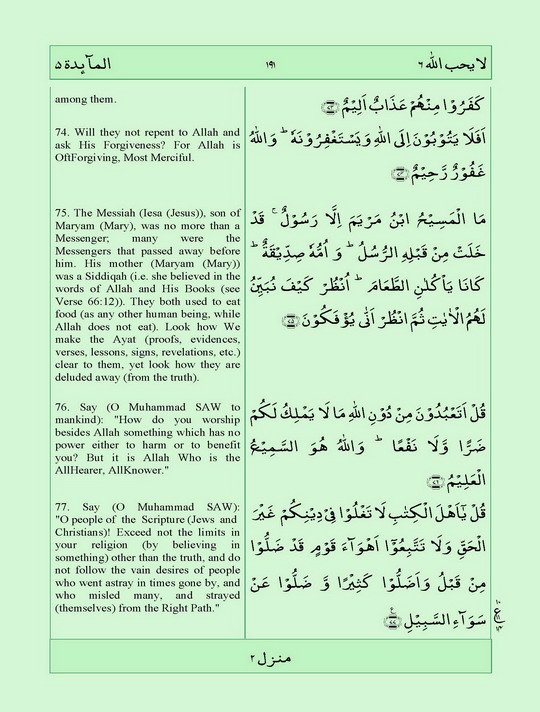 المآىِٕدة ۵ ۱۹۱ لا يحب الله ۶
among them.
74. Will they not repent to Allah and
ask His Forgiveness? For Allah is
OftForgiving, Most Merciful.
75. The Messiah (Iesa (Jesus)), son of
Maryam (Mary), was no more than a
Messenger; many were the
Messengers that passed away before
him. His mother (Maryam (Mary))
was a Siddiqah (i.e. she believed in the
words of Allah and His Books (see
Verse 66:12)). They both used to eat
food (as any other human being, while
Allah does not eat). Look how We
make the Ayat (proofs, evidences,
verses, lessons, signs, revelations, etc.)
clear to them, yet look how they are
deluded away (from the truth).
76. Say (O Muhammad SAW to
mankind): "How do you worship
besides Allah something which has no
power either to harm or to benefit
you? But it is Allah Who is the
AllHearer, AllKnower."
77. Say (O Muhammad SAW):
"O people of the Scripture (Jews and
Christians)! Exceed not the limits in
your religion (by believing in
something) other than the truth, and do
not follow the vain desires of people
who went astray in times gone by, and
who misled many, and strayed
(themselves) from the Right Path."
كَفَرُوْا مِنْهُمْ عَذَابٌ اَلِيْمٌ ﴿۷۳﴾
اَفَلَا يَتُوْبُوْنَ اِلَى اللّٰهِ وَيَسْتَغْفِرُوْنَهٗ ؕ وَاللّٰهُ
غَفُوْرٌ رَّحِيْمٌ ﴿۷۴﴾
مَا الْمَسِيْحُ ابْنُ مَرْيَمَ اِلَّا رَسُوْلٌ ۚ قَدْ
خَلَتْ مِنْ قَبْلِهِ الرُّسُلُ ؕ وَ اُمُّهٗ صِدِّيْقَةٌ ؕ
كَانَا يَاْكُلٰنِ الطَّعَامَ ؕ اُنْظُرْ كَيْفَ نُبَيِّنُ
لَهُمُ الْاٰيٰتِ ثُمَّ انْظُرْ اَنّٰى يُؤْفَكُوْنَ ﴿۷۵﴾
قُلْ اَتَعْبُدُوْنَ مِنْ دُوْنِ اللّٰهِ مَا لَا يَمْلِكُ لَكُمْ
ضَرًّا وَّلَا نَفْعًا ؕ وَاللّٰهُ هُوَ السَّمِيْعُ
الْعَلِيْمُ ﴿۷۶﴾
قُلْ يٰۤاَهْلَ الْكِتٰبِ لَا تَغْلُوْا فِىْ دِيْنِكُمْ غَيْرَ
الْحَقِّ وَلَا تَتَّبِعُوْۤا اَهْوَآءَ قَوْمٍ قَدْ ضَلُّوْا
مِنْ قَبْلُ وَاَضَلُّوْا كَثِيْرًا وَّ ضَلُّوْا عَنْ
سَوَآءِ السَّبِيْلِ ﴿۷۷﴾
منزل ۲